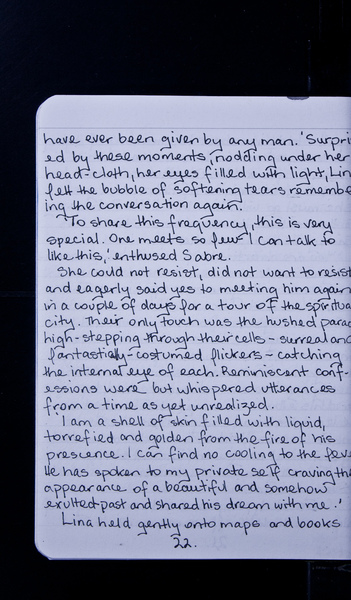 have ever been given by any man. 'Surpri
ed by these moments, nodding under her
head-cloth, her eyes filled with light, Lin
felt the bubble of softening tears remembe
ing the conversation again.
'To share this frequency, this is very
special. One meets so few I can talk to
like this,' enthused Sabre.
She could not resist, did not want to resist
and eagerly said yes to meeting him again
in a couple of days for a tour of the spiritua
city. Their only touch was the hushed parad
high-stepping through their cells - surreal and
fantastically-costumed flickers - catching
the internal eye of each. Reminiscent conf-
essions were but whispered utterances
from a time as yet unrealized.
'I am a shell of skin filled with liquid,
torrefied and golden from the fire of his
prescence. I can find no cooling to the feve
He has spoken to my private self craving the
appearance of a beautiful and somehow
exulted past and shared his dream with me.'
Lina held gently onto maps and books
22.